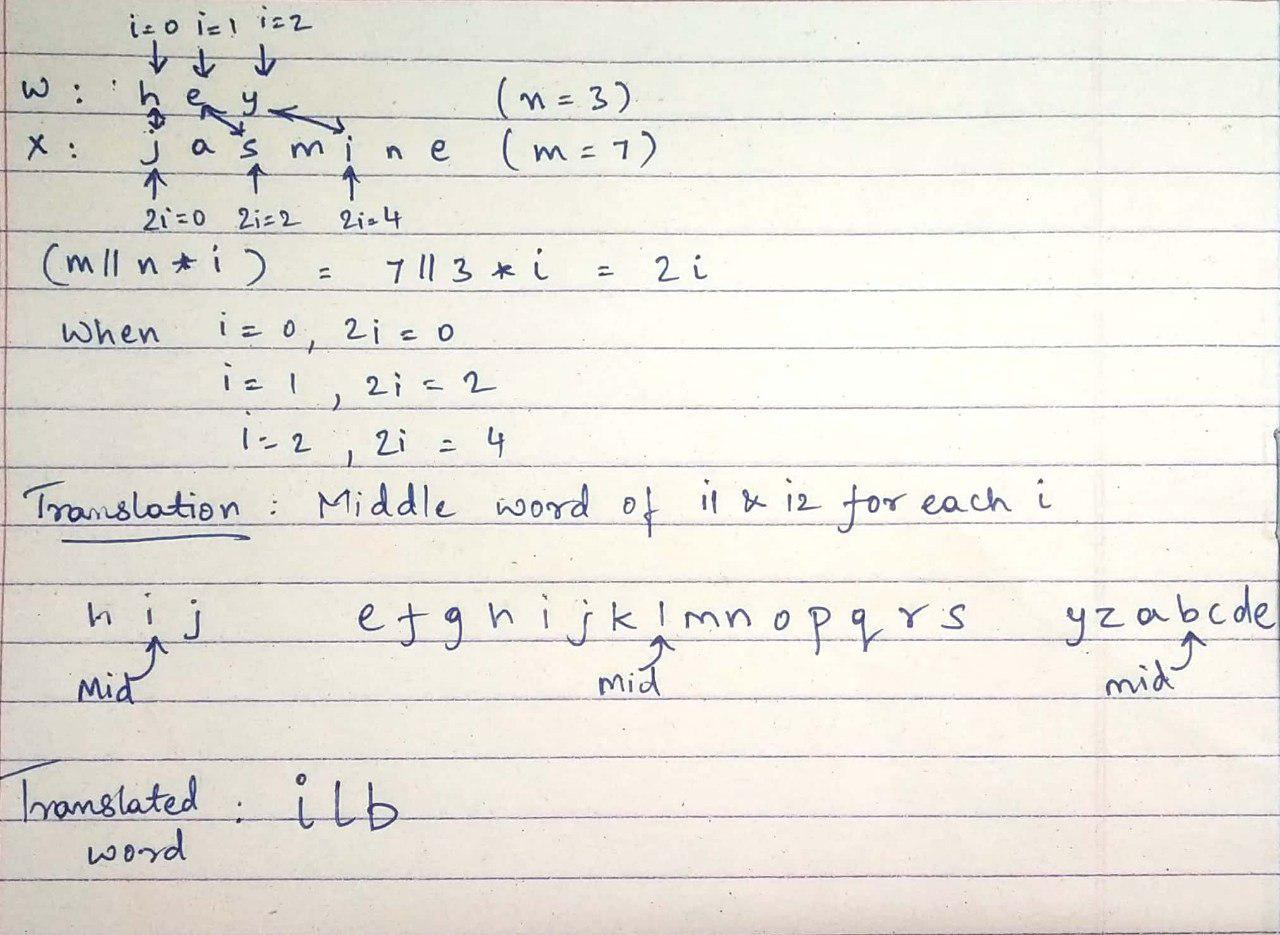 i=0 i=1 i=2
w : h e y (n = 3)
x : j a s m i n e (m = 7)
2i=0 2i=2 2i=4
(m//n * i) = 7//3 * i = 2i
When i = 0, 2i = 0
i = 1, 2i = 2
i = 2, 2i = 4
Translation : Middle word of i1 & i2 for each i
h i j e f g h i j k l m n o p q r s y z a b c d e
Mid mid mid
Translated : i l b
word